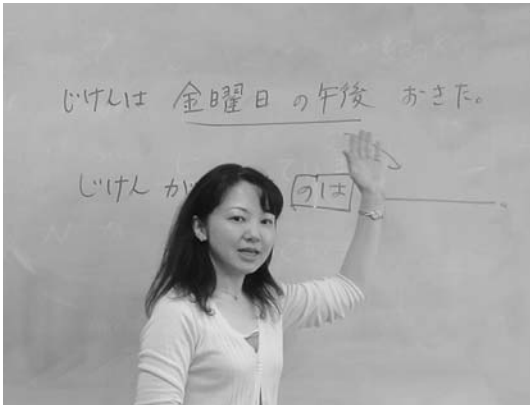 じけんは 金曜日 の午後 おきた。
じけん が のは